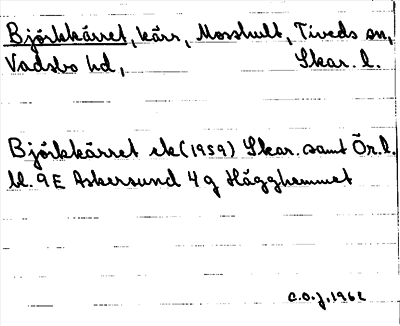 Björkkärret, kärr, Mosshult, Tiveds sn,
Vadsbo hd, Skar. l.
Björkkärret ek (1959) Skar. samt Ör. l.
bl. 9E Askersund 4g Hägghemmet
C.O.J. 1962